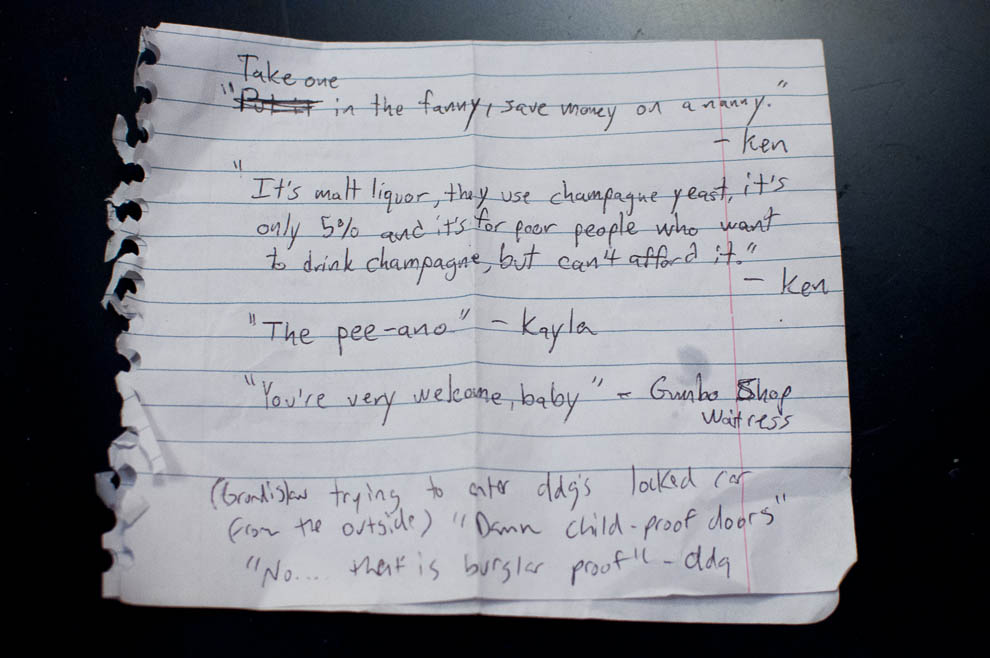 Take one
" in the fanny, save money on a nanny."
- Ken
"It's malt liquor, they use champagne yeast, it's
only 5% and it's for poor people who want
to drink champagne, but can't afford it."
- Ken
"The pee-ano" - Kayla
"You're very welcome, baby" - Gumbo Shop
Waitress
trying to enter ddg's locked car
from the outside) "Damn child-proof doors"
"No.... that is burglar proof" - ddg